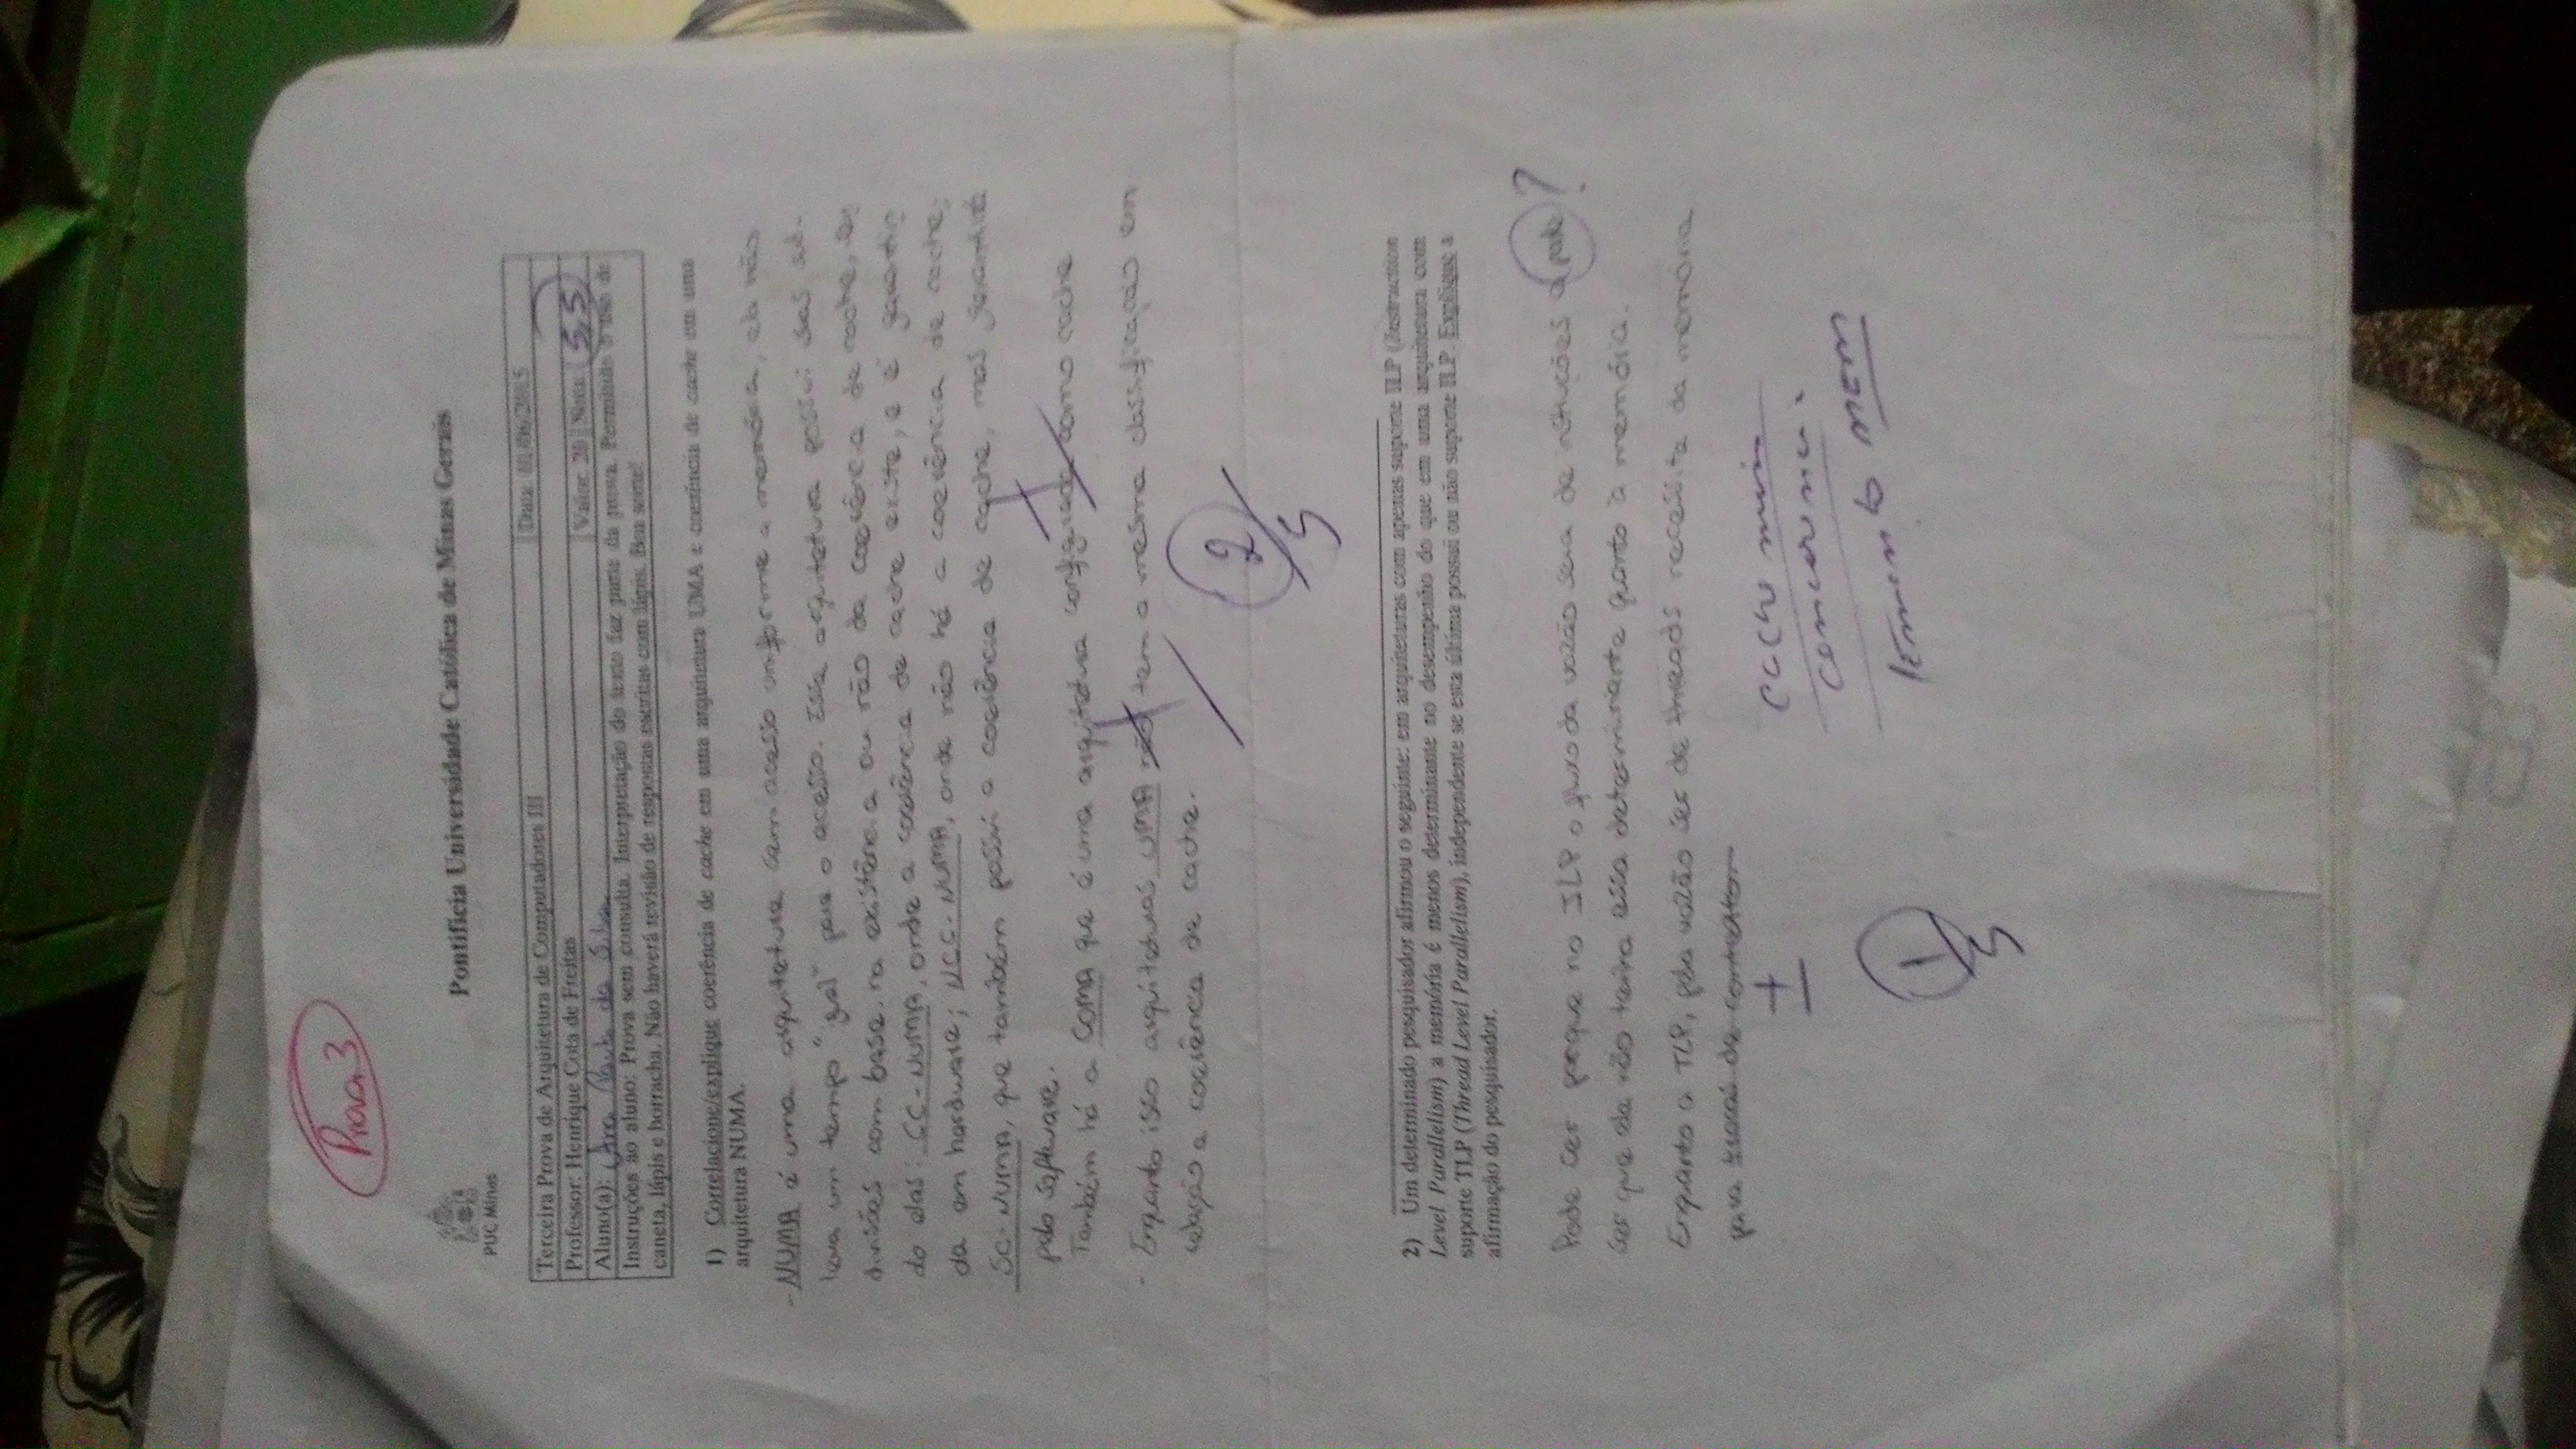 Prova 3
PUC Minas
Pontifícia Universidade Católica de Minas Gerais
Terceira Prova de Arquitetura de Computadores III
Data: 01/06/2015
Professor: Henrique Cota de Freitas
Valor: 20 Nota: 5,5
Aluno(a): Ana Paula da Silva
Instruções ao aluno: Prova sem consulta. Interpretação do texto faz parte da prova. Permitido o uso de
caneta, lápis e borracha. Não haverá revisão de respostas escritas com lápis. Boa sorte!
1) Correlacione/explique coerência de cache em uma arquitetura UMA e coerência de cache em uma
arquitetura NUMA.
- NUMA é uma arquitetura sem acesso uniforme a memória, ela não
leva um tempo "igual" para o acesso. Essa arquitetura possui suas sub-
divisões com base na existência ou não da coerência de cache, sen
do elas: CC-NUMA, onde a coerência de cache existe, e é garanti
da em hardware; NCC-NUMA, onde não há a coerência de cache;
SC-NUMA, que também possui a coerência de cache, mas garantida
pelo software.
Também há a COMA que é uma arquitetura configurada como cache
- Enquanto isso arquiteturas UMA não tem a mesma classificação em
relação a coerência de cache.
2/5
2) Um determinado pesquisador afirmou o seguinte: em arquiteturas com apenas suporte ILP (Instruction
Level Parallelism) a memória é menos determinante no desempenho do que em uma arquitetura com
suporte TLP (Thread Level Parallelism), independente se esta última possui ou não suporte ILP. Explique a
afirmação do pesquisador.
Pode ser porque no ILP o fluxo da vazão sera de instruções e pode ?
ser que ela não tenha essa determinante quanto à memória.
Enquanto a TLP, pela vazão ser de threads necessita da memória
para trocas de contexto
+
-
cache
MEM
1/5